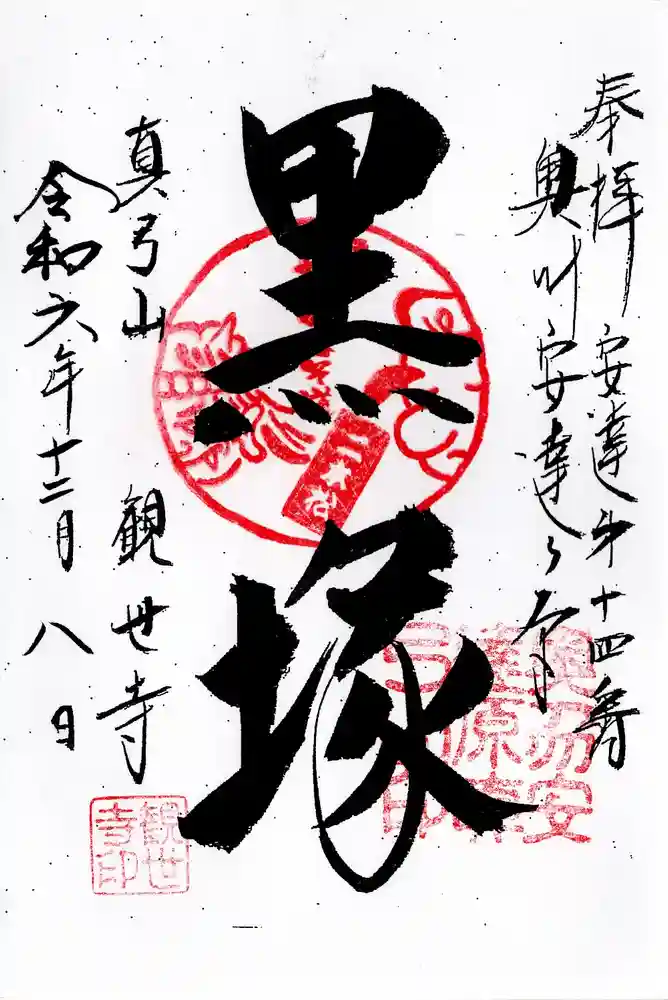 奉拝 安達第十四番
奥州安達ヶ原
黒塚
真弓山 観世寺
令和六年十二月八日
二本松
観世寺印